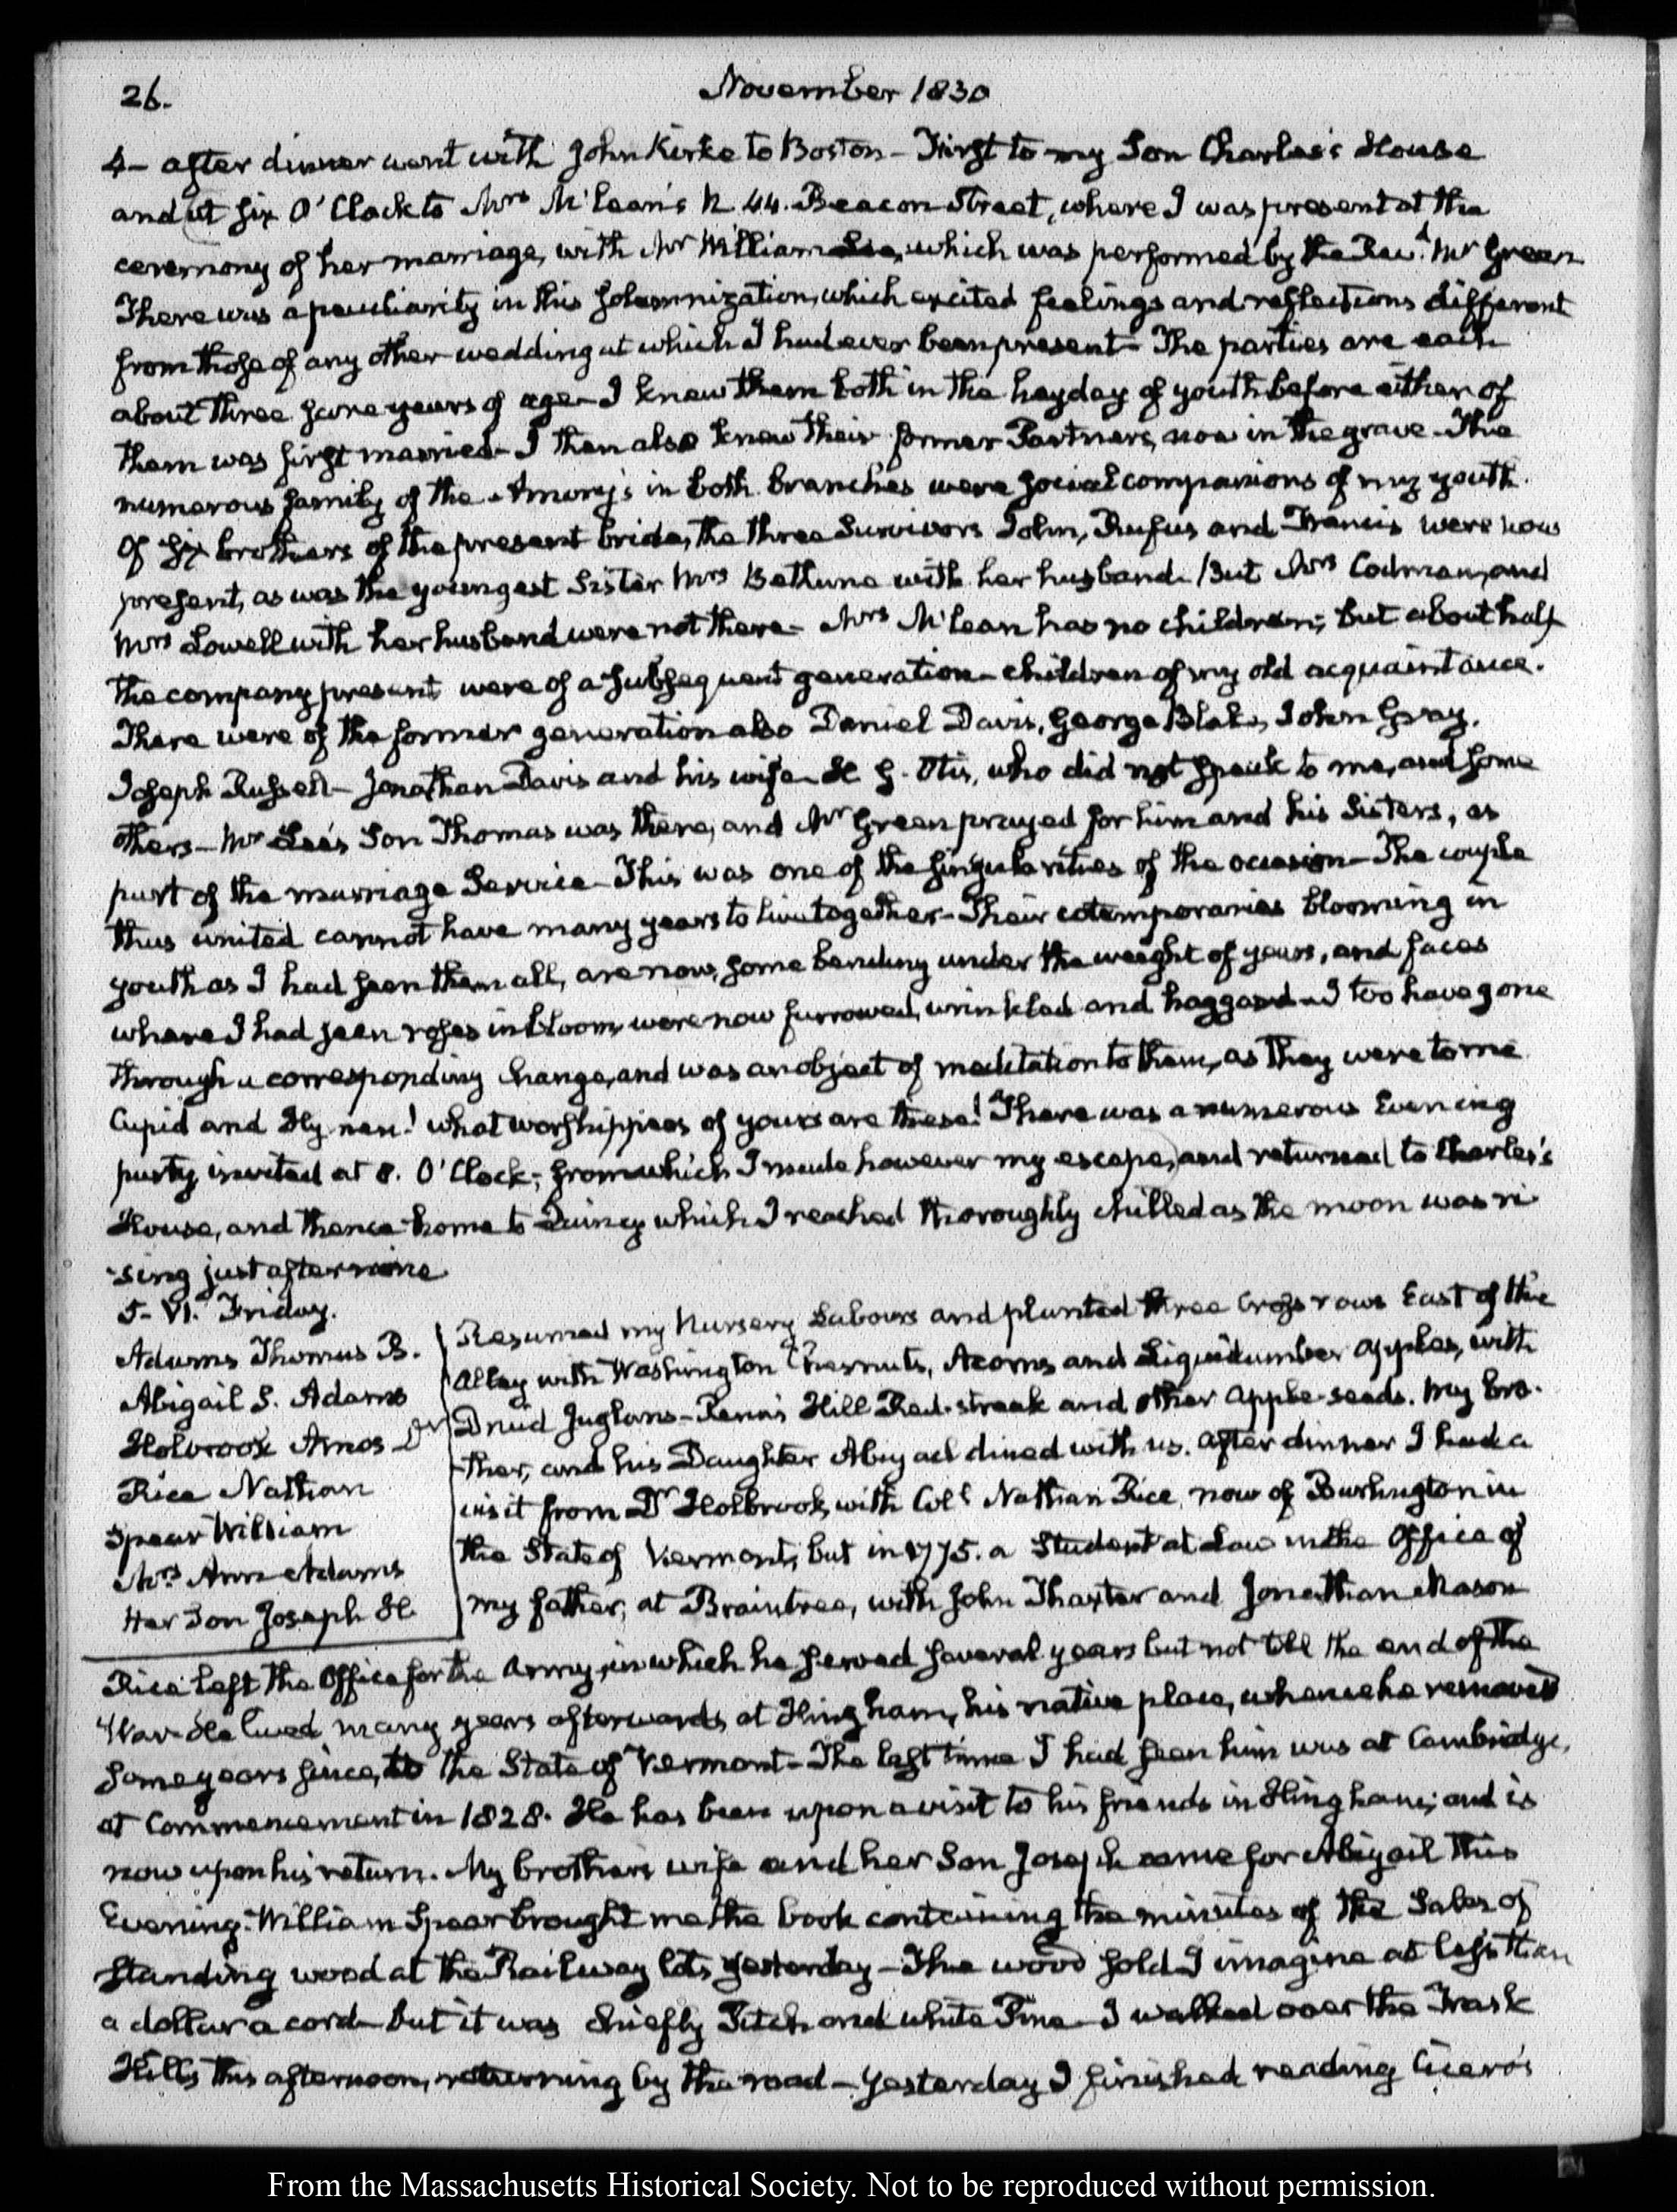 26.
November 1830
4 — after dinner went with John Kirke to Boston — First to my Son Charles's House
and at six O'Clock to Mrs McLean's N. 44. Beacon Street, where I was present at the
ceremony of her marriage, with Mr William Lee, which was performed by the Revd. Mr Green
There was a peculiarity in this solemnization, which excited feelings and reflections different
from those of any other wedding at which I had ever been present — The parties are each
about three score years of age — I knew them both in the heyday of youth before either of
them was first married — I then also knew their former Partners, now in the grave — The
numerous family of the Amory's in both branches were social companions of my youth.
Of six brothers of the present bride, the three Survivors John, Rufus and Francis were now
present, as was the youngest Sister Mrs Bethune with her husband — But Mrs Codman, and
Mrs Lowell with her husband were not there — Mrs McLean has no children; but about half
the company present were of a subsequent generation — children of my old acquaintance.
There were of the former generation also Daniel Davis, George Blake, John Gray,
Joseph Russell — Jonathan Davis and his wife — H. G. Otis, who did not speak to me, and some
others — Mr Lee's Son Thomas was there, and Mr Green prayed for him and his Sisters, as
part of the marriage Service — This was one of the singularities of the occasion — The couple
thus united cannot have many years to live together — Their cotemporaries blooming in
youth as I had seen them all, are now, some bending under the weight of years, and faces
where I had seen roses in bloom, were now furrowed, wrinkled and haggard — I too have gone
through a corresponding change, and was an object of meditation to them, as they were to me
Cupid and Hymen! what worshippers of yours are these! There was a numerous Evening
party invited at 8. O'Clock; from which I made however my escape, and returned to Charles's
House, and thence home to Quincy which I reached thoroughly chilled as the moon was ri-
sing just after nine
5 — VI. Friday.
Adams Thomas B.
Abigail S. Adams
Holbrook Amos Dr
Rice Nathan
Spear William
Mrs. Ann Adams
Her Son Joseph H.
Resumed my Nursery Labours and planted three Cross rows East of the
Alley with Washington Chesnuts, Acorns and Liquidumber apples, with
Druid Juglans — Penn's Hill Red-streak and other apple-seeds. My bro-
ther, and his Daughter Abigail dined with us. After dinner I had a
visit from Dr Holbrook, with Coll. Nathan Rice, now of Burlington in
the State of Vermont; but in 1775. a Student at Law in the Office of
my father, at Braintree, with John Thaxter and Jonathan Mason
Rice left the Office for the Army, in which he served several years but not till the end of the
War — He lived many years afterwards at Hingham, his native place, whence he removed
some years since, to the State of Vermont — The last time I had seen him was at Cambridge,
at Commencement in 1828. He has been upon a visit to his friends in Hingham; and is
now upon his return. My brother's wife and her Son Joseph came for Abigail this
Evening. William Spear brought me the book containing the minutes of the Sales of
standing wood at the Railway lots yesterday — The wood sold I imagine at less than
a dollar a cord — but it was chiefly Pitch and white Pine — I walked over the Trask
Hills this afternoon, returning by the road — Yesterday I finished reading Cicero's
From the Massachusetts Historical Society. Not to be reproduced without permission.